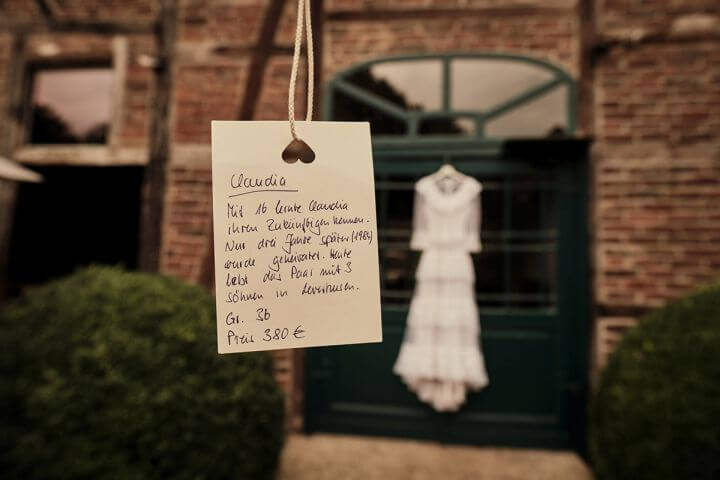 Claudia
Mit 16 lernte Claudia
ihren Zukünftigen kennen.
Nur drei Jahre später (1984)
wurde geheiratet. Heute
lebt das Paar mit 3
Söhnen in Leverkusen.
Gr. 36
Preis 380 €